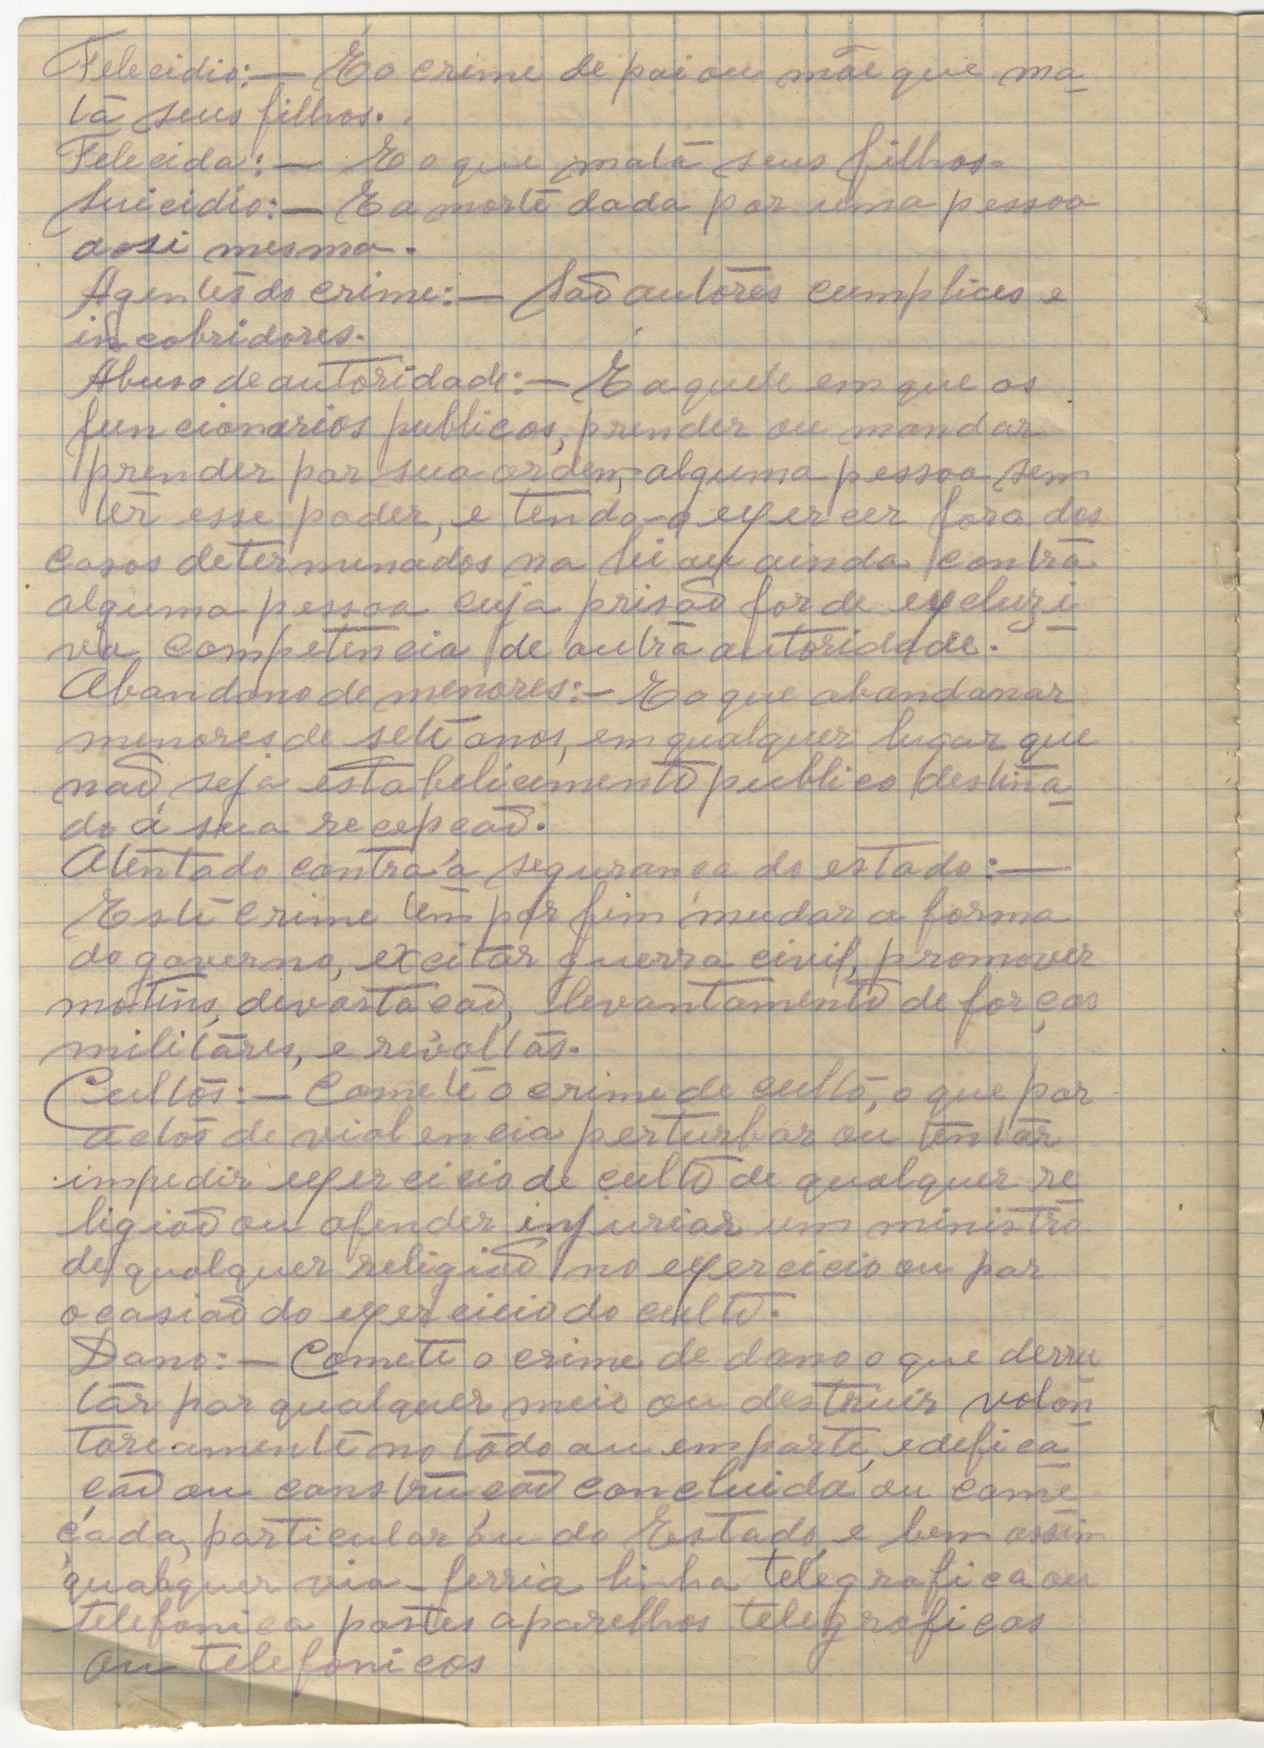 Felecidio:— E o crime de pai ou mãe que ma-
ta seus filhos.
Felecida:— E o que mata seus filhos.
Suicidio:— E a morte dada por uma pessoa
a si mesma.
Agentes do crime:— São autores cumplices e
incobridores.
Abuso de autoridade:— É aquele em que os
funcionarios publicos, prender ou mandar
prender por sua ordem, alguma pessoa sem
ter esse poder, e tendo-o exercer fora dos
casos determinados na lei ou ainda contra
alguma pessoa cuja prisão for de excluzi-
va competencia de outra autoridade.
Abandono de menores:— E o que abandonar
menores de sete anos, em qualquer lugar que
não seja estabelicimento publico destina-
do á sua recepção.
Atentado contra a segurança do estado:—
Este crime tem por fim mudar a forma
do governo, excitar guerra civil, promover
motins, devastação, levantamento de forças
militares, e revoltas.
Cultos:— Comete o crime de culto, o que por
actos de violencia perturbar ou tentar
impedir exercicio de culto de qualquer re-
ligião ou ofender injuriar um ministro
de qualquer religião no exercicio ou por
ocasião do exercicio do culto.
Dano:— Comete o crime de dano o que derru
tar por qualquer meio ou destruir volon-
toreamente no todo ou em parte, edefica-
ção ou construção concluida ou come-
çada, particular ou do Estado, e bem assim
qualquer via-ferria linha telegrafica ou
telefonica postes aparelhos telegraficos
ou telefonicos